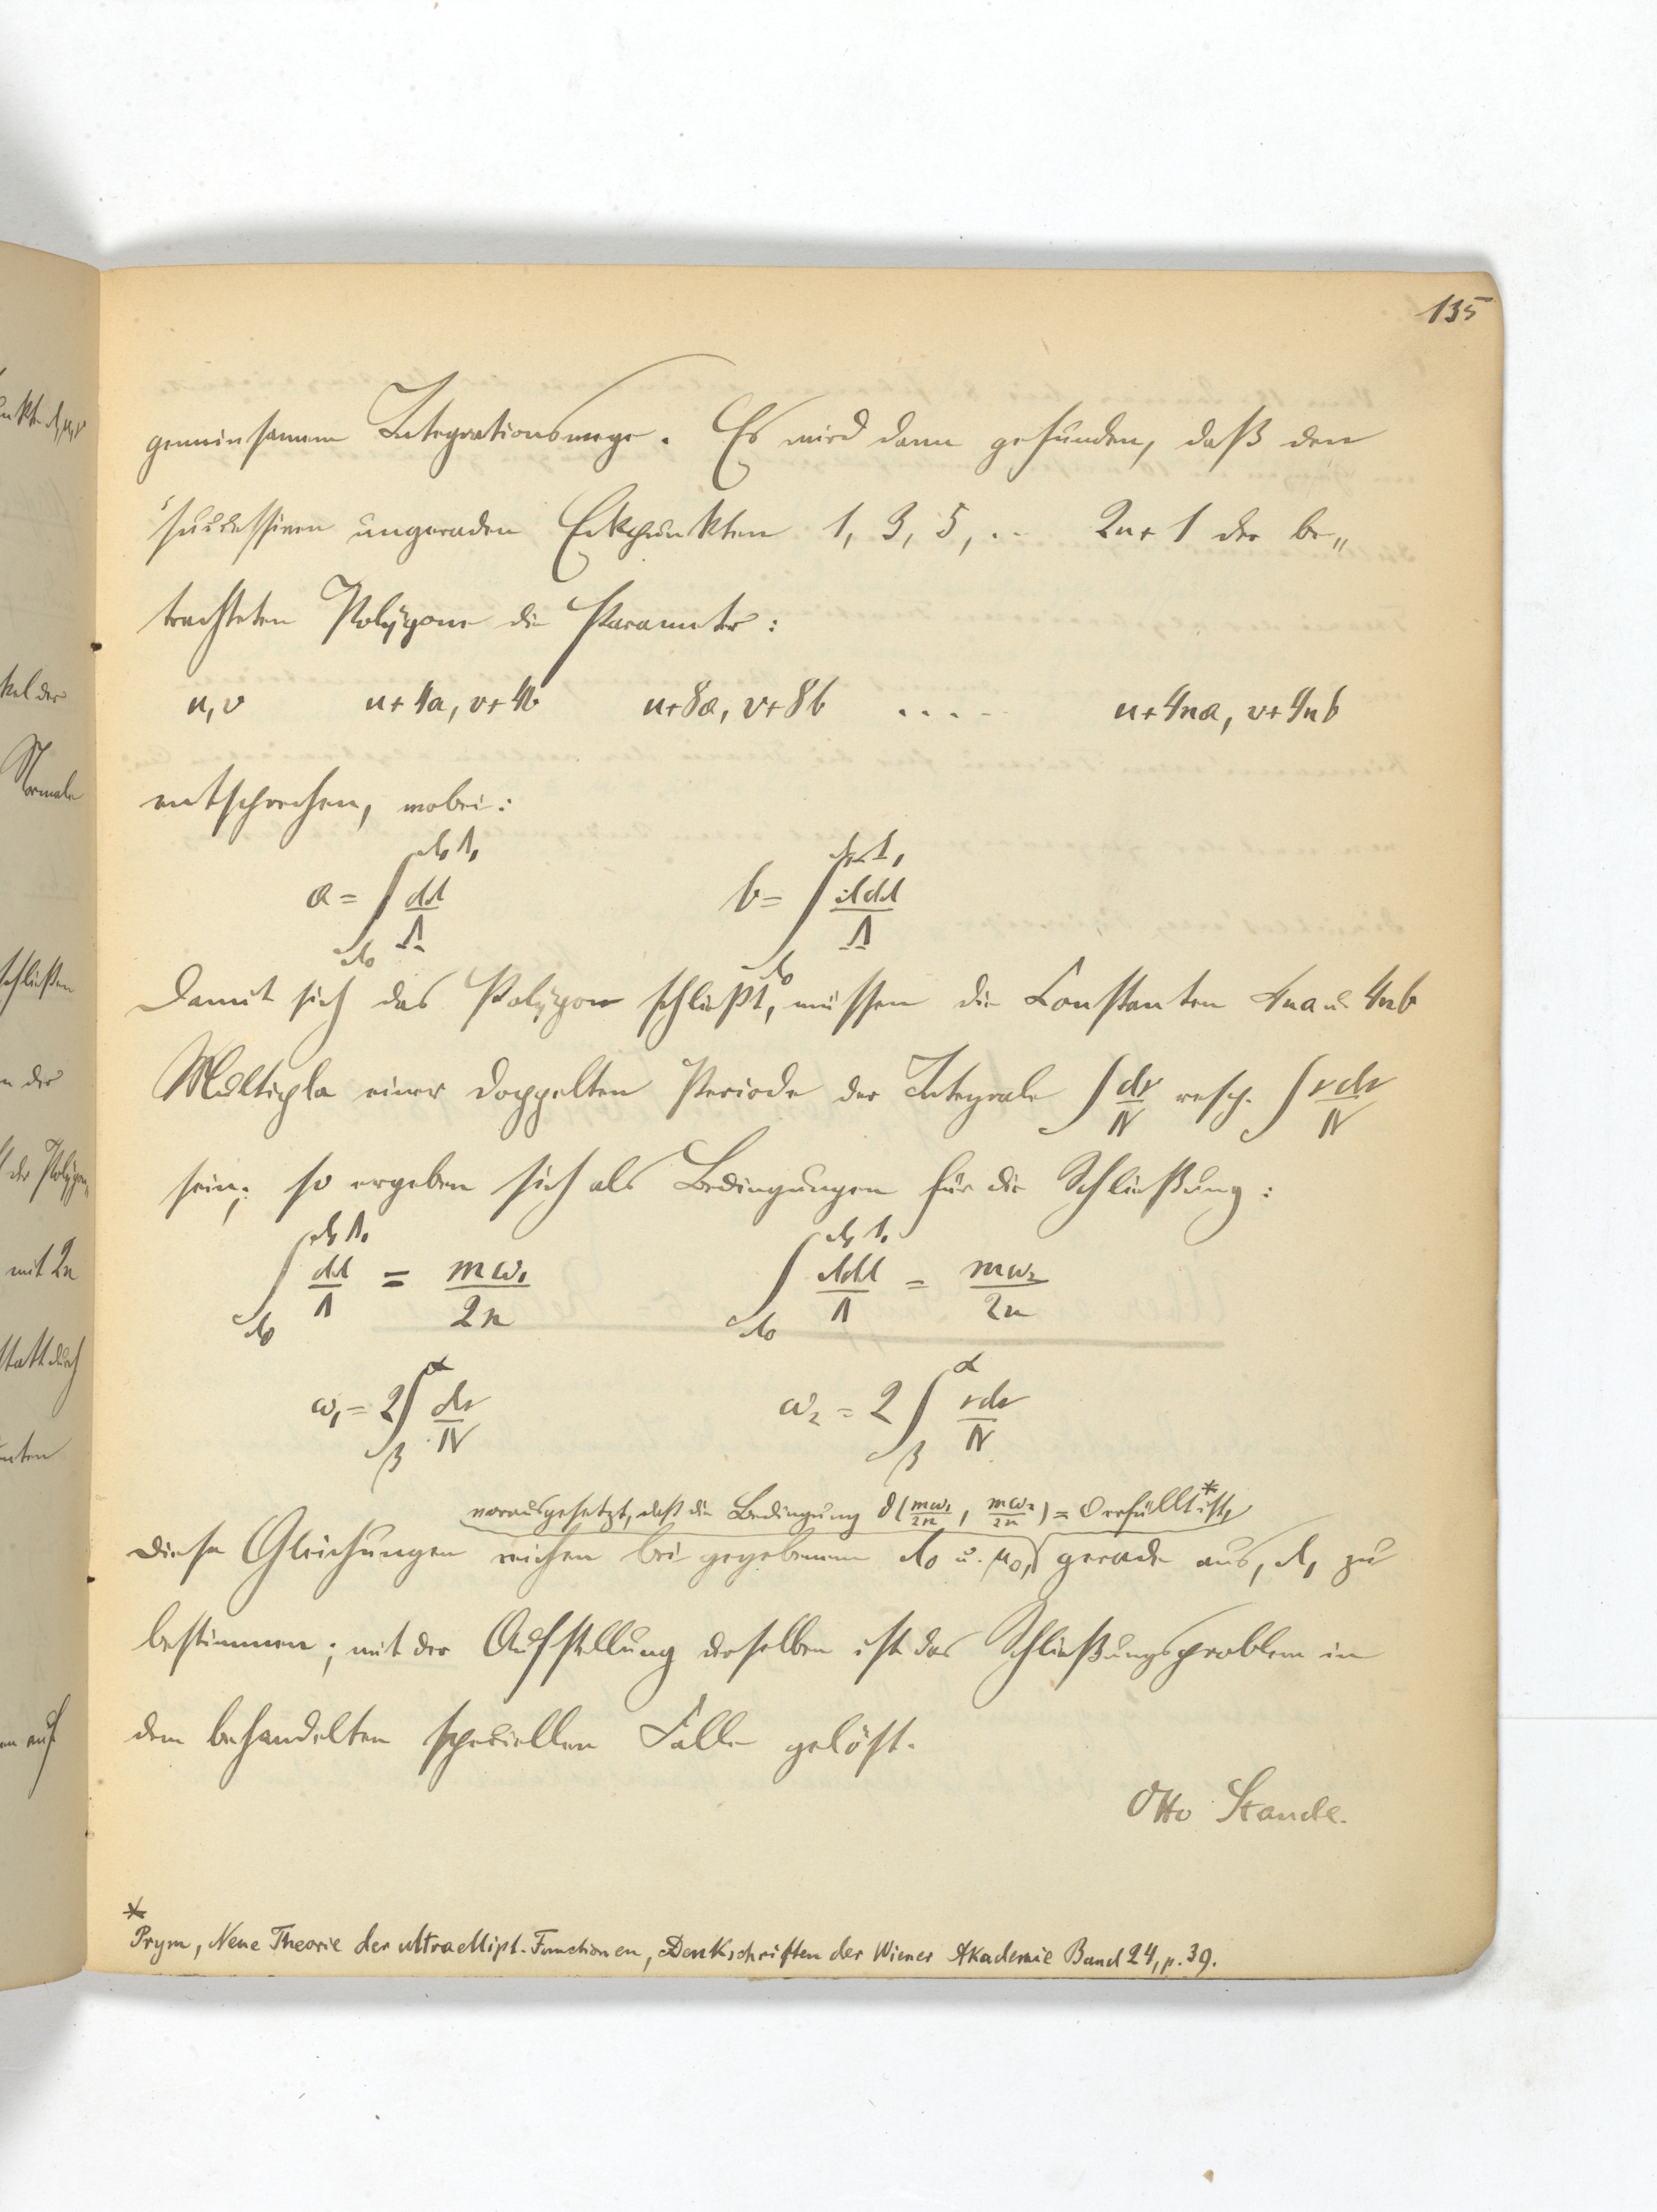 135
gemeinsamem Integrationswege. Es wird dann gefunden, daß den
successiven ungeraden Eckpunkten 1, 3, 5, .. 2n+1 der be„
trachteten Polygone die Parameter:
u, v u+4a, v+4b u+8a, v+8b ..... u+4na, v+4nb
entsprechen, wobei:
a = ∫_{λ₀}^{λ₁ Λ₁} dλ/Λ b = ∫_{λ₀}^{λ₁ Λ₁} λdλ/Λ
Damit sich das Polygon schließt, müssen die Constanten 4na u. 4nb
Multipla einer doppelten Periode der Integrale ∫ dν/N resp. ∫ νdν/N
sein; so ergeben sich als Bedingungen für die Schließung:
∫_{λ₀}^{λ₁ Λ₁} dλ/Λ = mω₁/2n ∫_{λ₀}^{λ₁ Λ₁} λdλ/Λ = mω₂/2n
ω₁ = 2∫_β^α dν/N ω₂ = 2∫_β^α νdν/N
vorausgesetzt, daß die Bedingung ϑ(mω₁/2n, mω₂/2n) = 0 erfüllt* ist,
Diese Gleichungen reichen bei gegebenem λ₀ u. μ₀, gerade aus, λ₁ zu
bestimmen; mit der Aufstellung derselben ist das Schließungsproblem in
dem behandelten speciellen Falle gelöst.
Otto Staude.
*
Prym, Neue Theorie der ultraellipt. Functionen, Denkschriften der Wiener Akademie Band 24, p. 39.